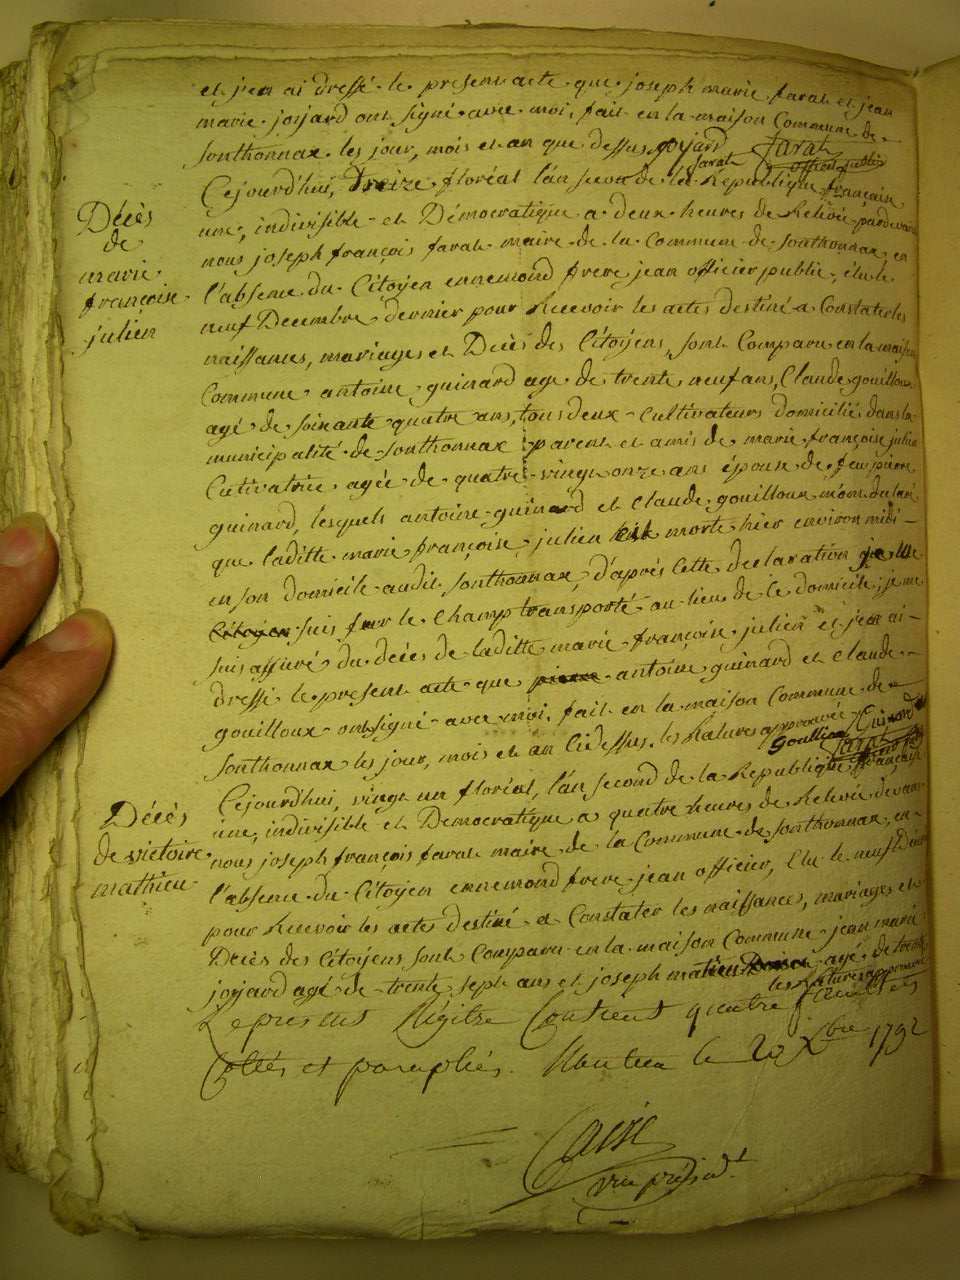 et j'en ai dressé le present acte que joseph marie farat et jean
marie joyard ont signé avec moi, fait en la maison Commune de
Sonthonnax les jour, mois et an que dessus joyard farat
farat officier public
Cejourd'hui, Treize floréal l'an second de la République française
Décès
de
marie
françoise
julien
une, indivisible et Démocratique a deux heures de Relévé pardevant
nous joseph françois farat maire de la Commune de Sonthonnax, en
l'absence du Citoyen ennemond frere jean officier public, élu le
neuf Decembre dernier pour Recevoir les actes destiné a Constater les
naissances, mariages et Décès des Citoyens, sont Comparu en la maison
Commune antoine guinard age de trente neuf ans, Claude gouilloux
agé de soixante quatre ans, tous deux Cultivateurs domicilié dans la
municipalité de Sonthonnax parent et amis de marie françoise julien
Cultivatrice agée de quatre vingt onze ans épouse de feu pierre
guinard, lesquels antoine guinard et Claude gouilloux m'ont declaré
que laditte marie françoise julien est morte hier environ midi
en son domicile audit Sonthonnax, d'après cette declaration je me
Citoyen suis sur le Champ transporté au lieu de ce domicile, je me
suis assuré du décès de laditte marie françoise julien et j'en ai
dressé le present acte que pierre antoine guinard et Claude
gouilloux ont signé avec moi, fait en la maison Commune de
Sonthonnax les jour, mois et an Cidessus. les Rature approuvée
Goullion Guinard
farat
Cejourd'hui, vingt un floréal, l'an second de la République française
Décès
de victoire
mathieu
une, indivisible et Democratique a quatre heures de Relévé devant
nous joseph françois farat maire de la Commune de Sonthonnax, en
l'absence du Citoyen ennemond frere jean officier, Elu le neuf Décre
pour Recevoir les actes destiné a Constater les naissances, mariages et
Décès des Citoyens sont Comparu en la maison Commune jean marie
joyard agé de trente sept ans et joseph matieu agé de trente
les Rature approuvée
Le present Régitre Contient quatre feuillets
Cottés et paraphés. Nantua le 20 Xbre 1792
vice président